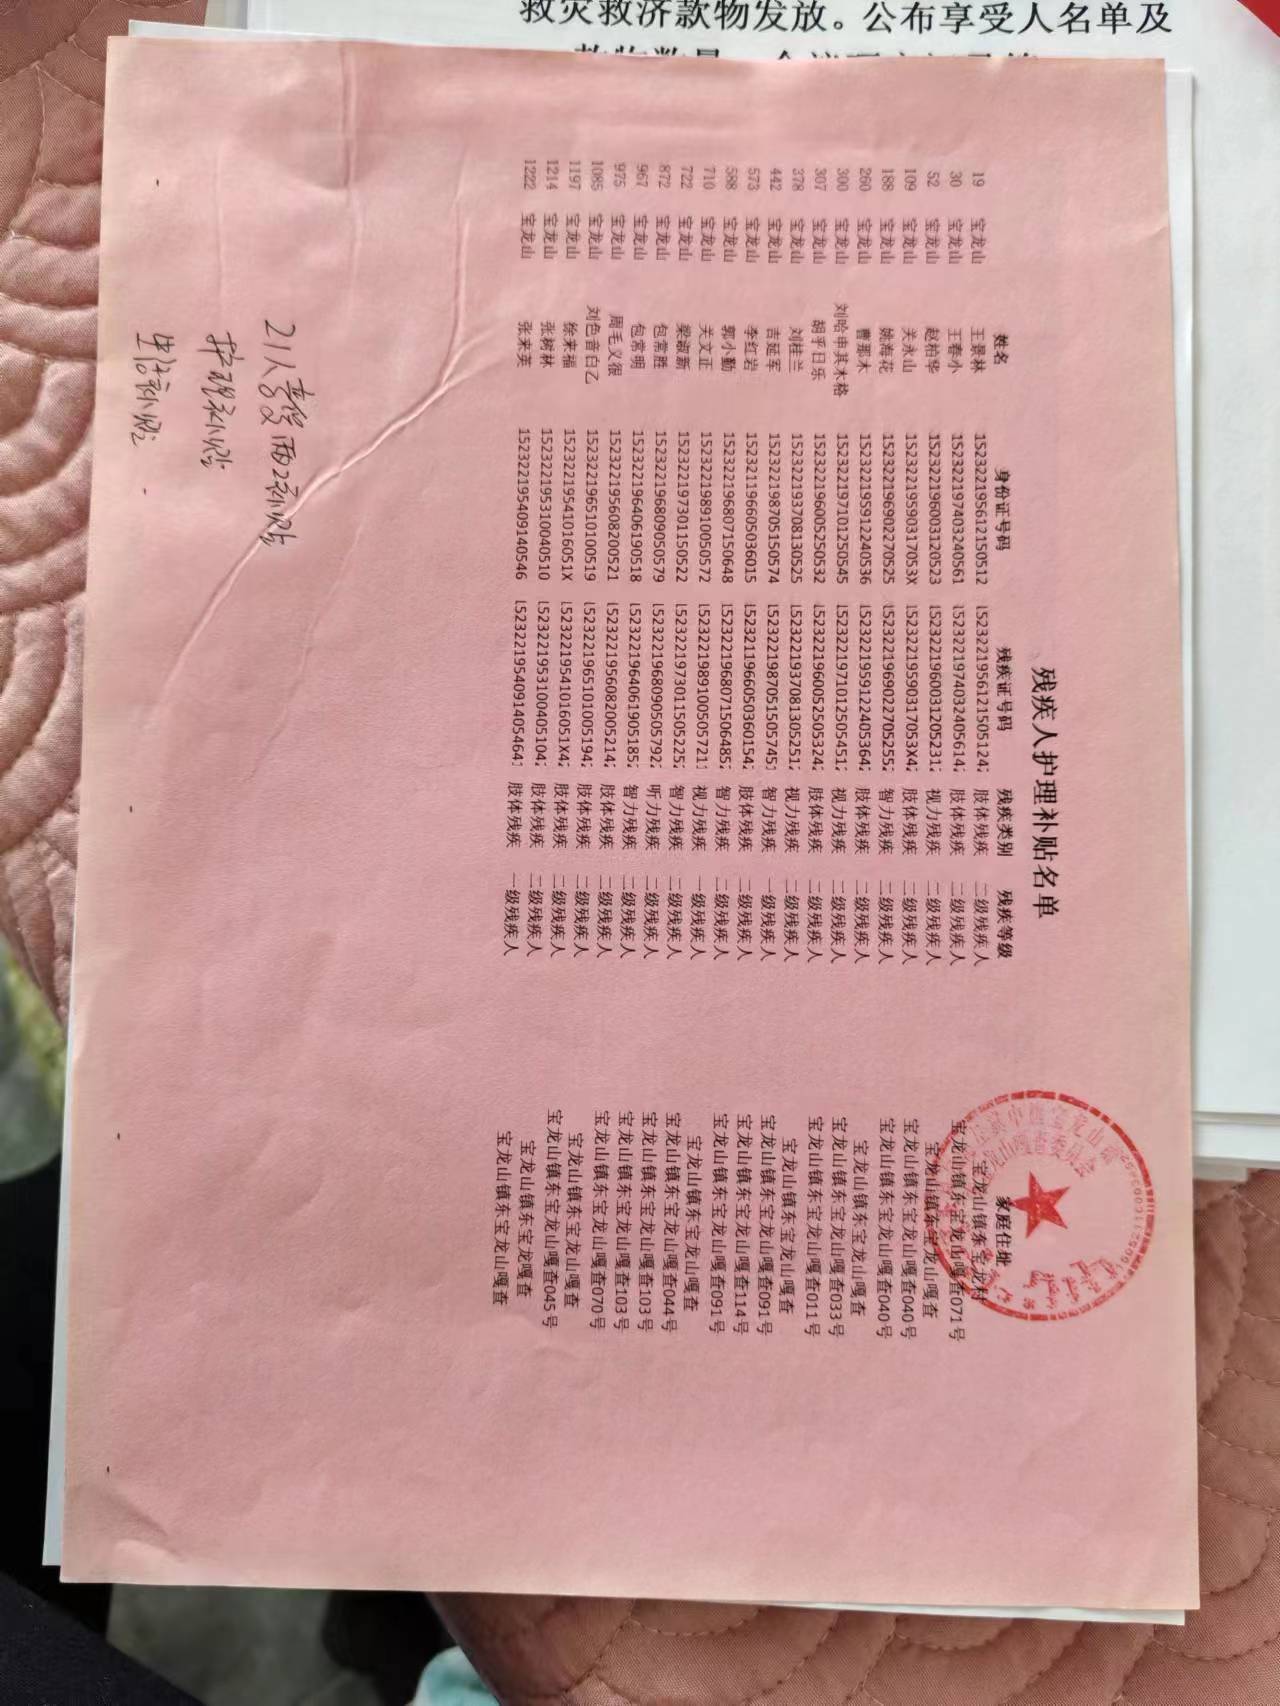 救灾救济款物发放。公布享受人名单及
残疾人护理补贴名单
姓名 身份证号码 残疾证号码 残疾类别 残疾等级 家庭住址
19 宝龙山 王景林 152322195612150512 15232219561215051242 肢体残疾 二级残疾人 宝龙山镇东宝龙村
30 宝龙山 王春小 152322197403240561 15232219740324056142 肢体残疾 二级残疾人 宝龙山镇东宝龙山嘎查071号
52 宝龙山 赵柏华 152322196003120523 15232219600312052312 视力残疾 二级残疾人 宝龙山镇东宝龙山嘎查
109 宝龙山 关永山 15232219590317053X 15232219590317053X42 肢体残疾 二级残疾人 宝龙山镇东宝龙山嘎查040号
188 宝龙山 姚海花 152322196902270525 15232219690227052552 智力残疾 二级残疾人 宝龙山镇东宝龙山嘎查040号
260 宝龙山 曹那木 152322195912240536 15232219591224053642 肢体残疾 二级残疾人 宝龙山镇东宝龙山嘎查
300 宝龙山 刘哈申其木格 152322197101250545 15232219710125054512 视力残疾 二级残疾人 宝龙山镇东宝龙山嘎查033号
307 宝龙山 胡乎日乐 152322196005250532 15232219600525053242 肢体残疾 二级残疾人 宝龙山镇东宝龙山嘎查011号
378 宝龙山 刘桂兰 152322193708130525 15232219370813052512 视力残疾 二级残疾人 宝龙山镇东宝龙山嘎查
442 宝龙山 吉延军 152322198705150574 15232219870515057451 智力残疾 一级残疾人 宝龙山镇东宝龙山嘎查091号
573 宝龙山 李红岩 152321196605036015 15232119660503601542 肢体残疾 二级残疾人 宝龙山镇东宝龙山嘎查114号
588 宝龙山 郭小勤 152322196807150648 15232219680715064852 智力残疾 二级残疾人 宝龙山镇东宝龙山嘎查091号
710 宝龙山 关文正 152322198910050572 15232219891005057211 视力残疾 一级残疾人 宝龙山镇东宝龙山嘎查
722 宝龙山 梁淑新 152322197301150522 15232219730115052252 智力残疾 二级残疾人 宝龙山镇东宝龙山嘎查044号
872 宝龙山 包常胜 152322196809050579 15232219680905057922 听力残疾 二级残疾人 宝龙山镇东宝龙山嘎查103号
967 宝龙山 包常明 152322196406190518 15232219640619051852 智力残疾 二级残疾人 宝龙山镇东宝龙山嘎查103号
975 宝龙山 周毛义很 152322195608200521 15232219560820052142 肢体残疾 二级残疾人 宝龙山镇东宝龙山嘎查070号
1085 宝龙山 刘色音白乙 152322196510100519 15232219651010051942 肢体残疾 二级残疾人 宝龙山镇东宝龙山嘎查
1197 宝龙山 徐来福 15232219541016051X 15232219541016051X42 肢体残疾 二级残疾人 宝龙山镇东宝龙山嘎查045号
1214 宝龙山 张树林 152322195310040510 1523221953100405104 肢体残疾 二级残疾人 宝龙山镇东宝龙嘎查
1222 宝龙山 张来英 152322195409140546 15232219540914054641 肢体残疾 一级残疾人 宝龙山镇东宝龙山嘎查
21人享受两补贴
护理补贴
生活补贴